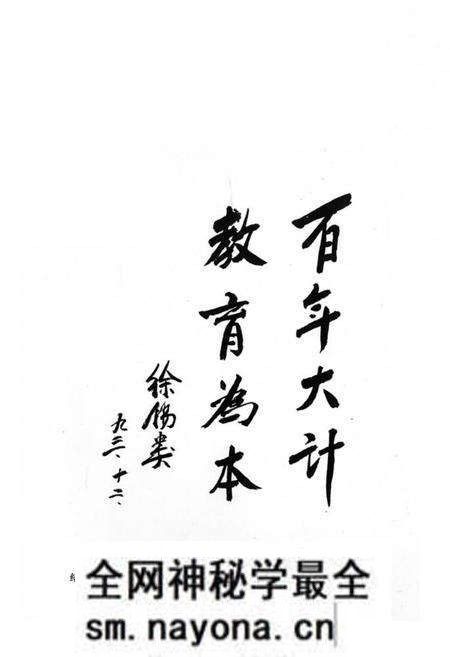 百年大计
教育為本
徐锡
九三、十二、
全网神秘学最全
sm.nayona.cn